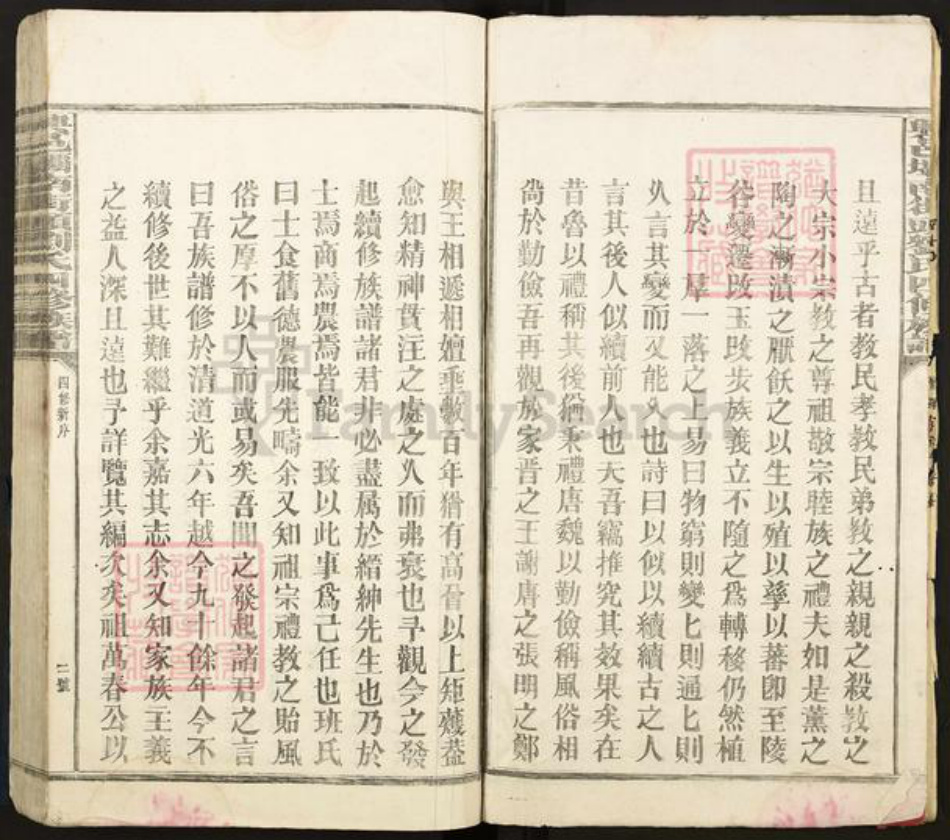 且遠乎古者教民孝教民弟教之親親之殺教之
大宗小宗教之尊祖敬宗睦族之禮夫如是薰之
陶之漸漬之厭飫之以生以殖以孳以蕃卽至陵
谷變遷改玉改步族義立不隨之爲轉移仍然植
立於一羣一落之上易曰物窮則變匕則通匕則
久言其變而又能久也詩曰以似以續續古之人
言其後人似續前人也夫吾竊推究其效果矣在
昔魯以禮稱其後猶秉禮唐魏以勤儉稱風俗相
尚於勤儉吾再觀族家晋之王謝唐之張明之鄭
與王相遞相嬗垂數百年猶有高曾以上矩矱葢
愈知精神貫注之處之久而弗衰也予觀今之發
起續修族譜諸君非必盡属於縉紳先生也乃於
士焉商焉農焉皆能一致以此事爲己任也班氏
曰士食舊德農服先疇余又知祖宗禮教之貽風
俗之厚不以人而或易矣吾聞之發起諸君之言
曰吾族譜修於清道光六年越今九十餘年今不
續修後世其難繼乎余嘉其志余又知家族主義
之益人深且遠也予詳覽其編次矣祖萬春公以
四修新序
二號
FamilySearch